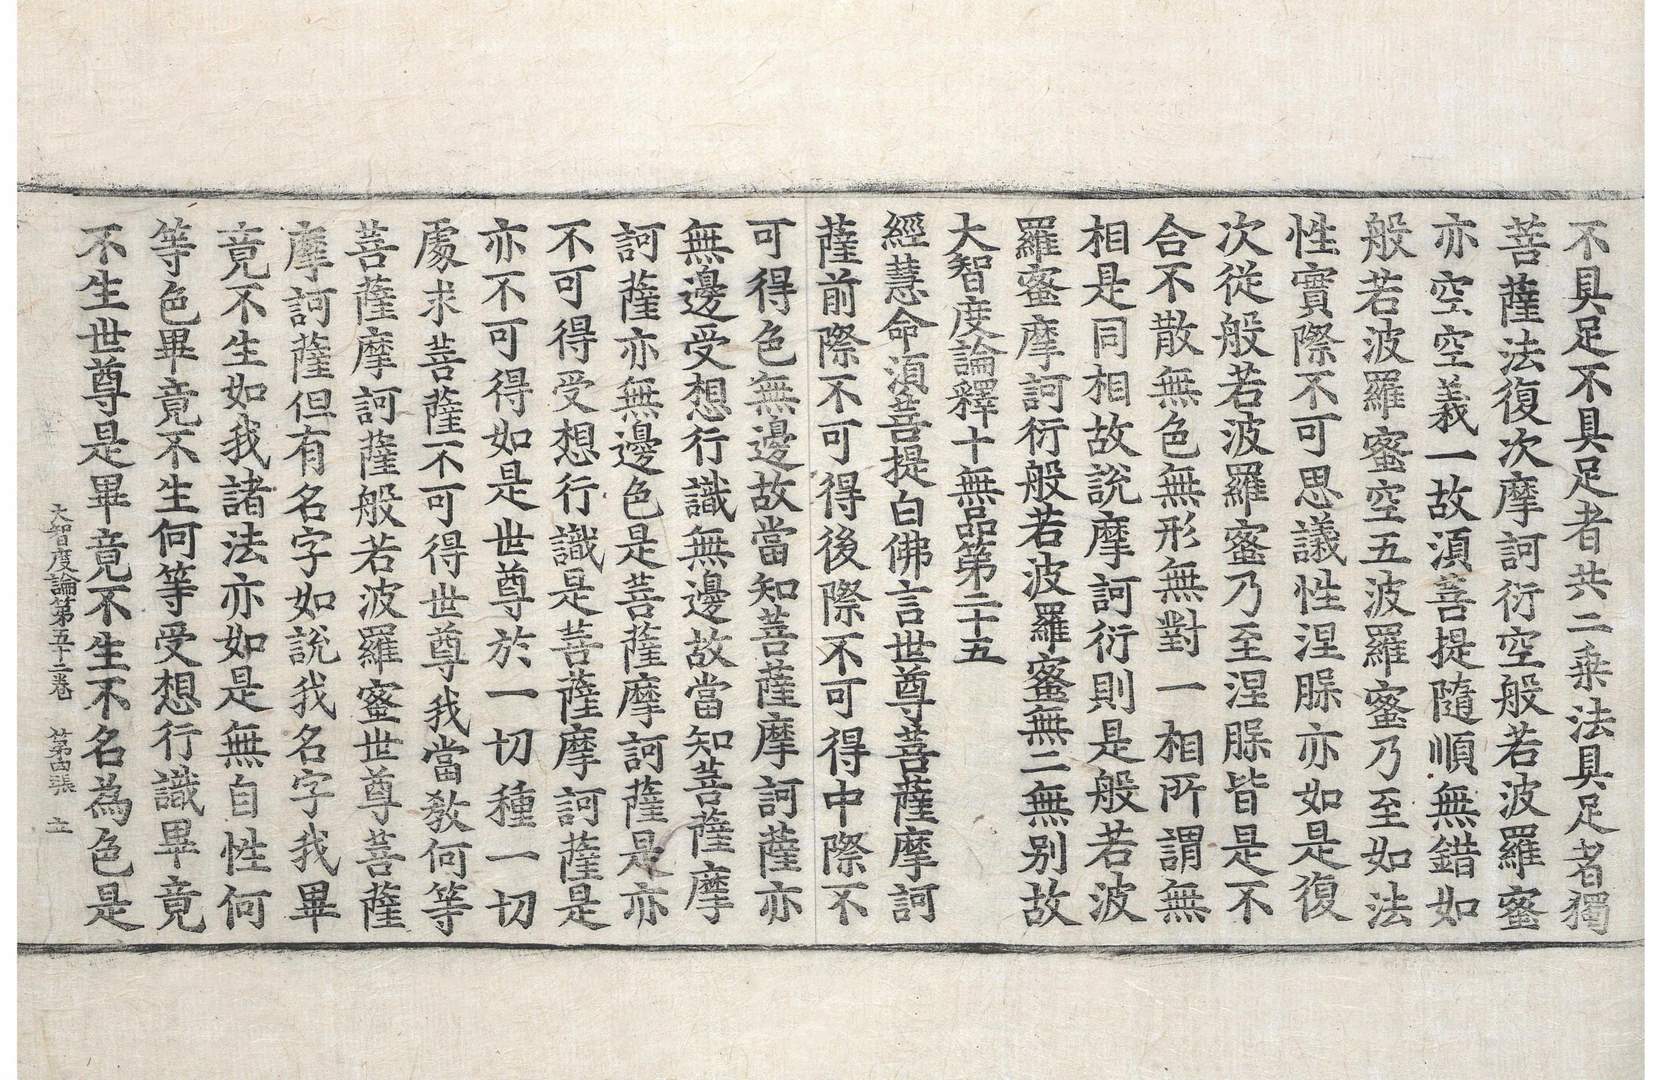 不具足不具足者共二乗法具足者獨
菩薩法復次摩訶衍空般若波羅蜜
亦空空義一故湏菩提隨順無錯如
般若波羅蜜空五波羅蜜乃至如法
性實際不可思議性涅脲亦如是復
次従般若波羅蜜乃至涅脲皆是不
合不散無色無形無對一相所謂無
相是同相故說摩訶衍則是般若波
羅蜜摩訶衍般若波羅蜜無二無別故
大智度論釋十無品第二十五
經慧命湏菩提白佛言世尊菩薩摩訶
薩前際不可得後際不可得中際不
可得色無邊故當知菩薩摩訶薩亦
無邊受想行識無邊故當知菩薩摩
訶薩亦無邊色是菩薩摩訶薩是亦
不可得受想行識是菩薩摩訶薩是
亦不可得如是世尊於一切種一切
處求菩薩不可得世尊我當教何等
菩薩摩訶薩般若波羅蜜世尊菩薩
摩訶薩但有名字如說我名字我畢
竟不生如我諸法亦如是無自性何
等色畢竟不生何等受想行識畢竟
不生世尊是畢竟不生不名為色是
大智度論第五十二卷 第四張 立